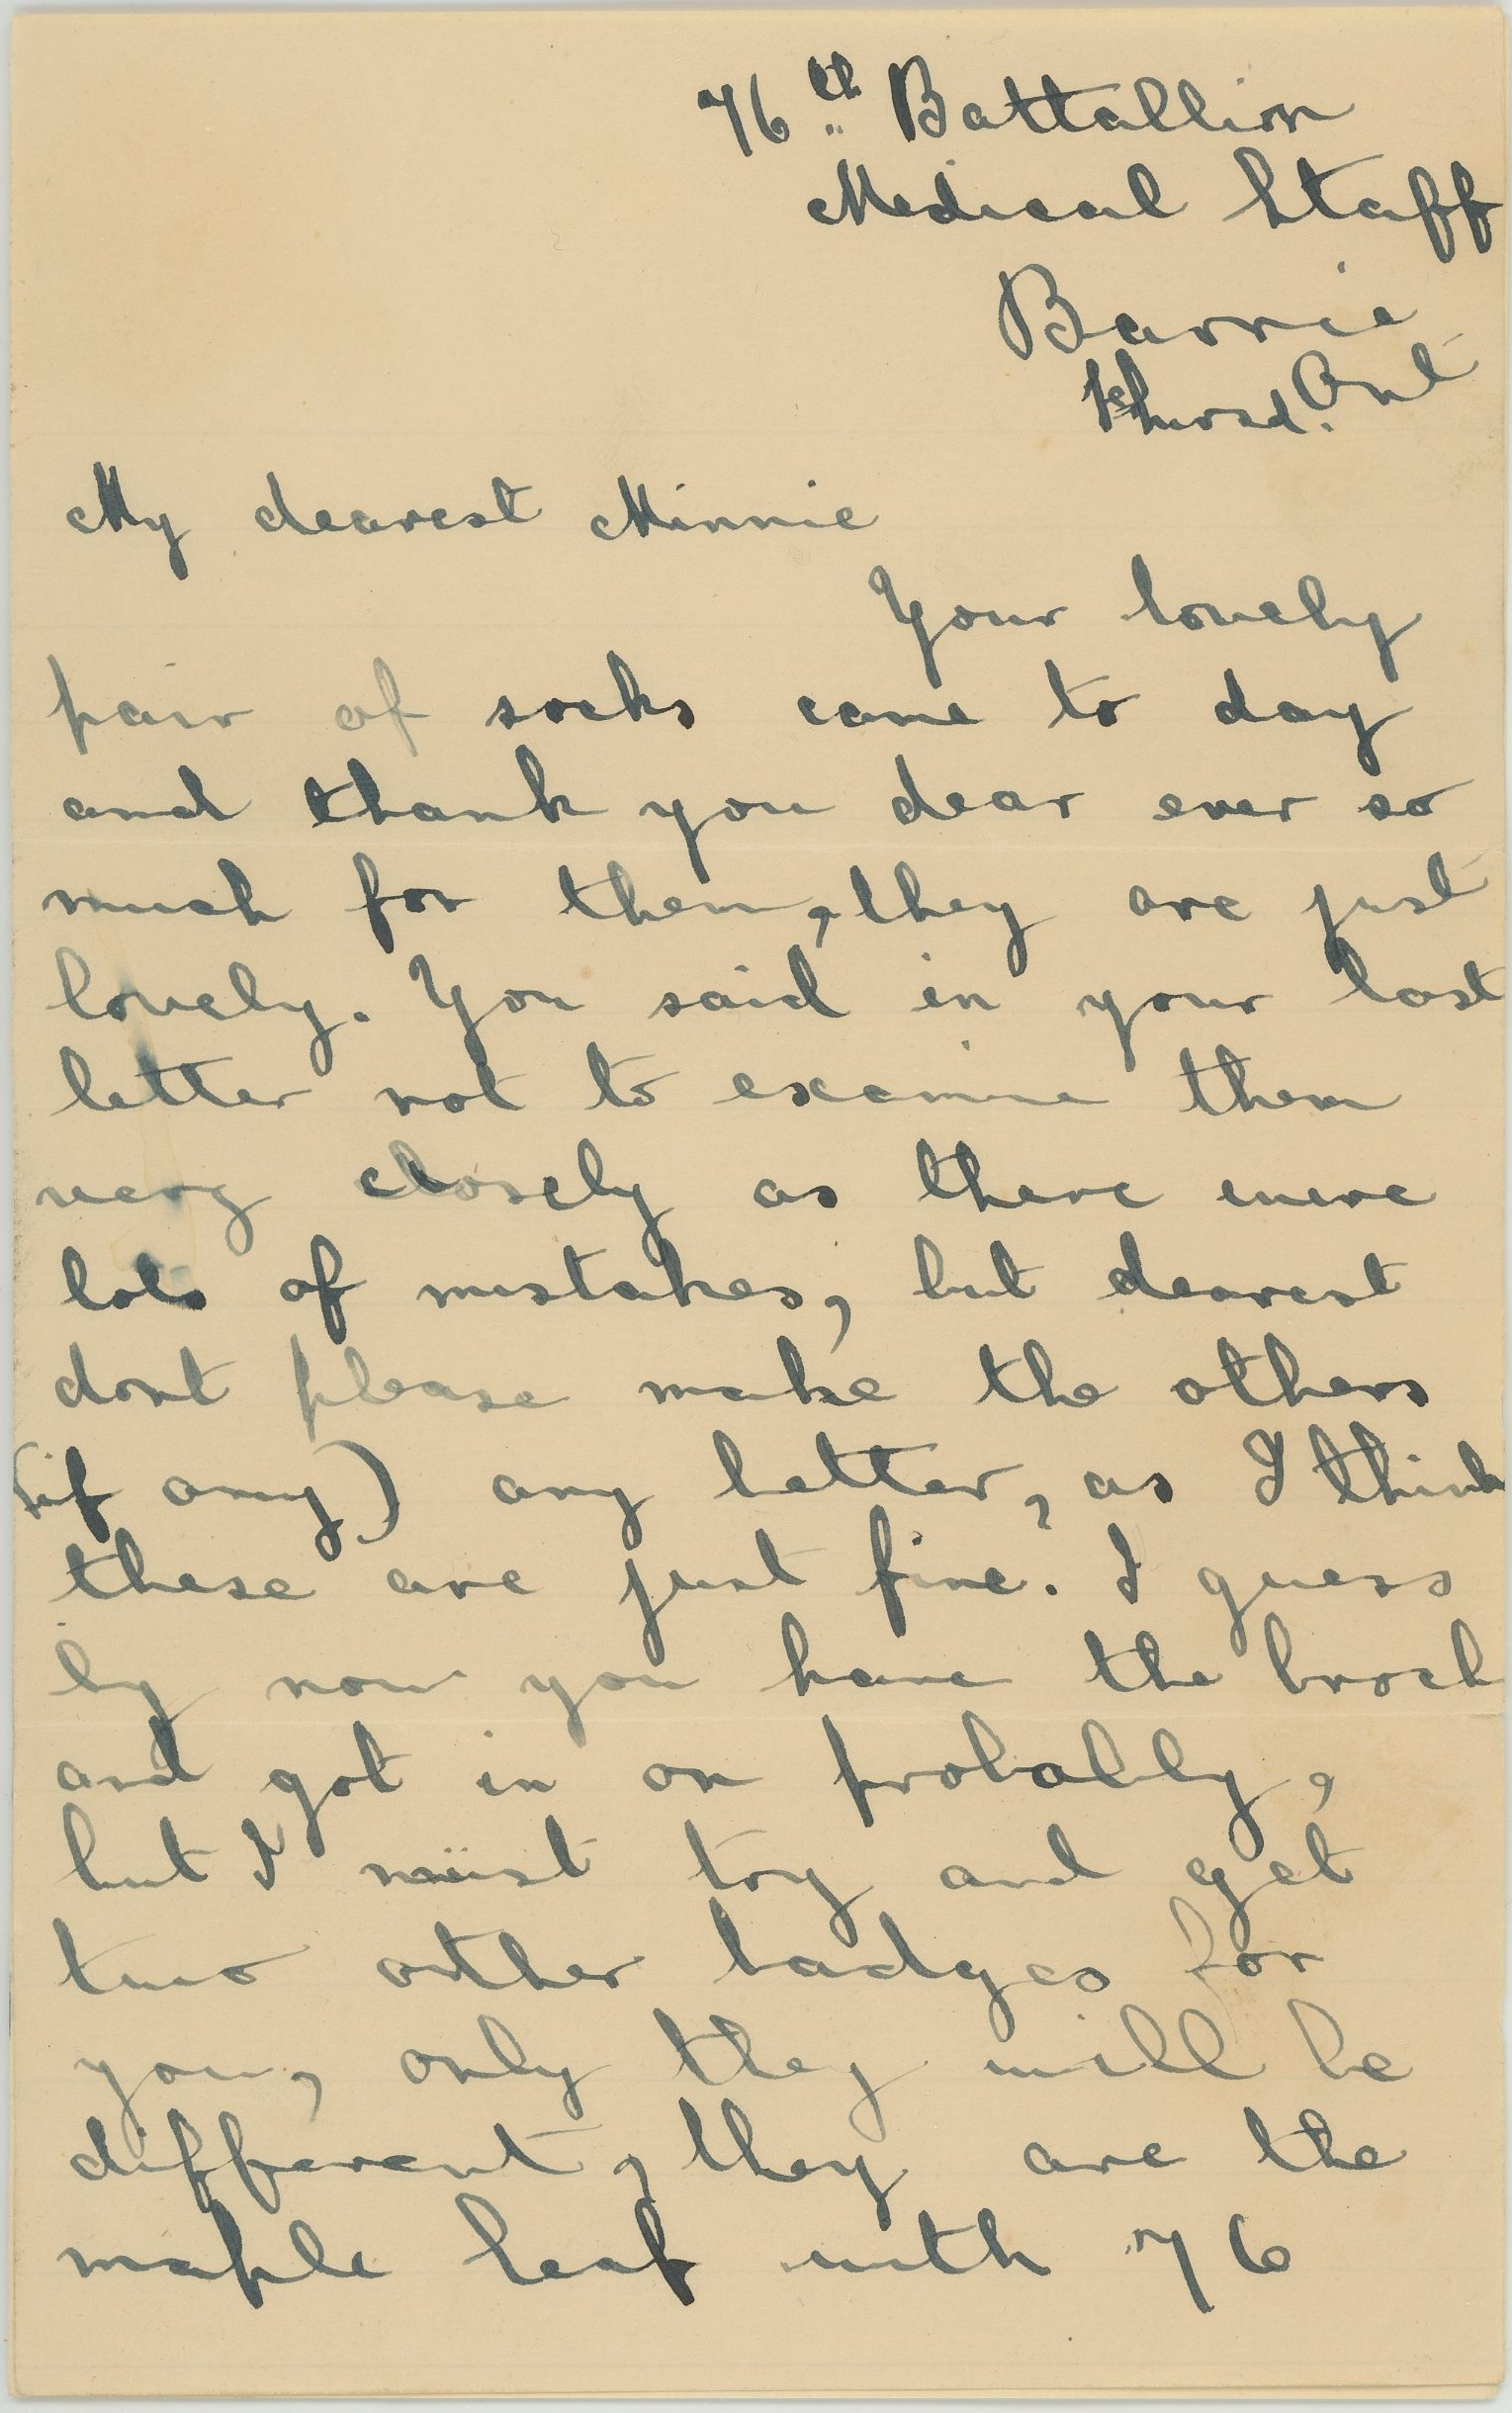 76th Battallion
Medical Staff
Barrie
Ont
Thursd.
My dearest Minnie
Your lovely
pair of socks came to day
and thank you dear ever so
much for them, they are just
lovely. You said in your last
letter not to examine them
very closely as there were
lots of mistakes, but dearest
dont please make the others
(if any) any better, as I think
these are just fine. I guess
by now you have the broch
and got in on probably,
but I must try and get
two other badges for
you, only they will be
different, they are the
maple leaf with 76